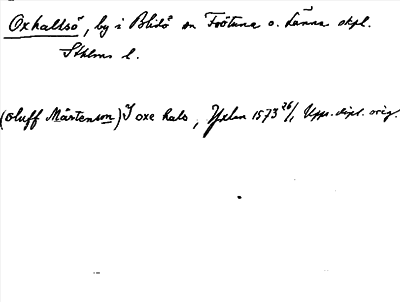 Oxhalsö, by i Blidö sn Frötuna o. Länna skpl.
Sthlms l.
(oluff Mårtenson) I oxe hals, Yxlan 1573 26/1 Upps. dipl. orig.